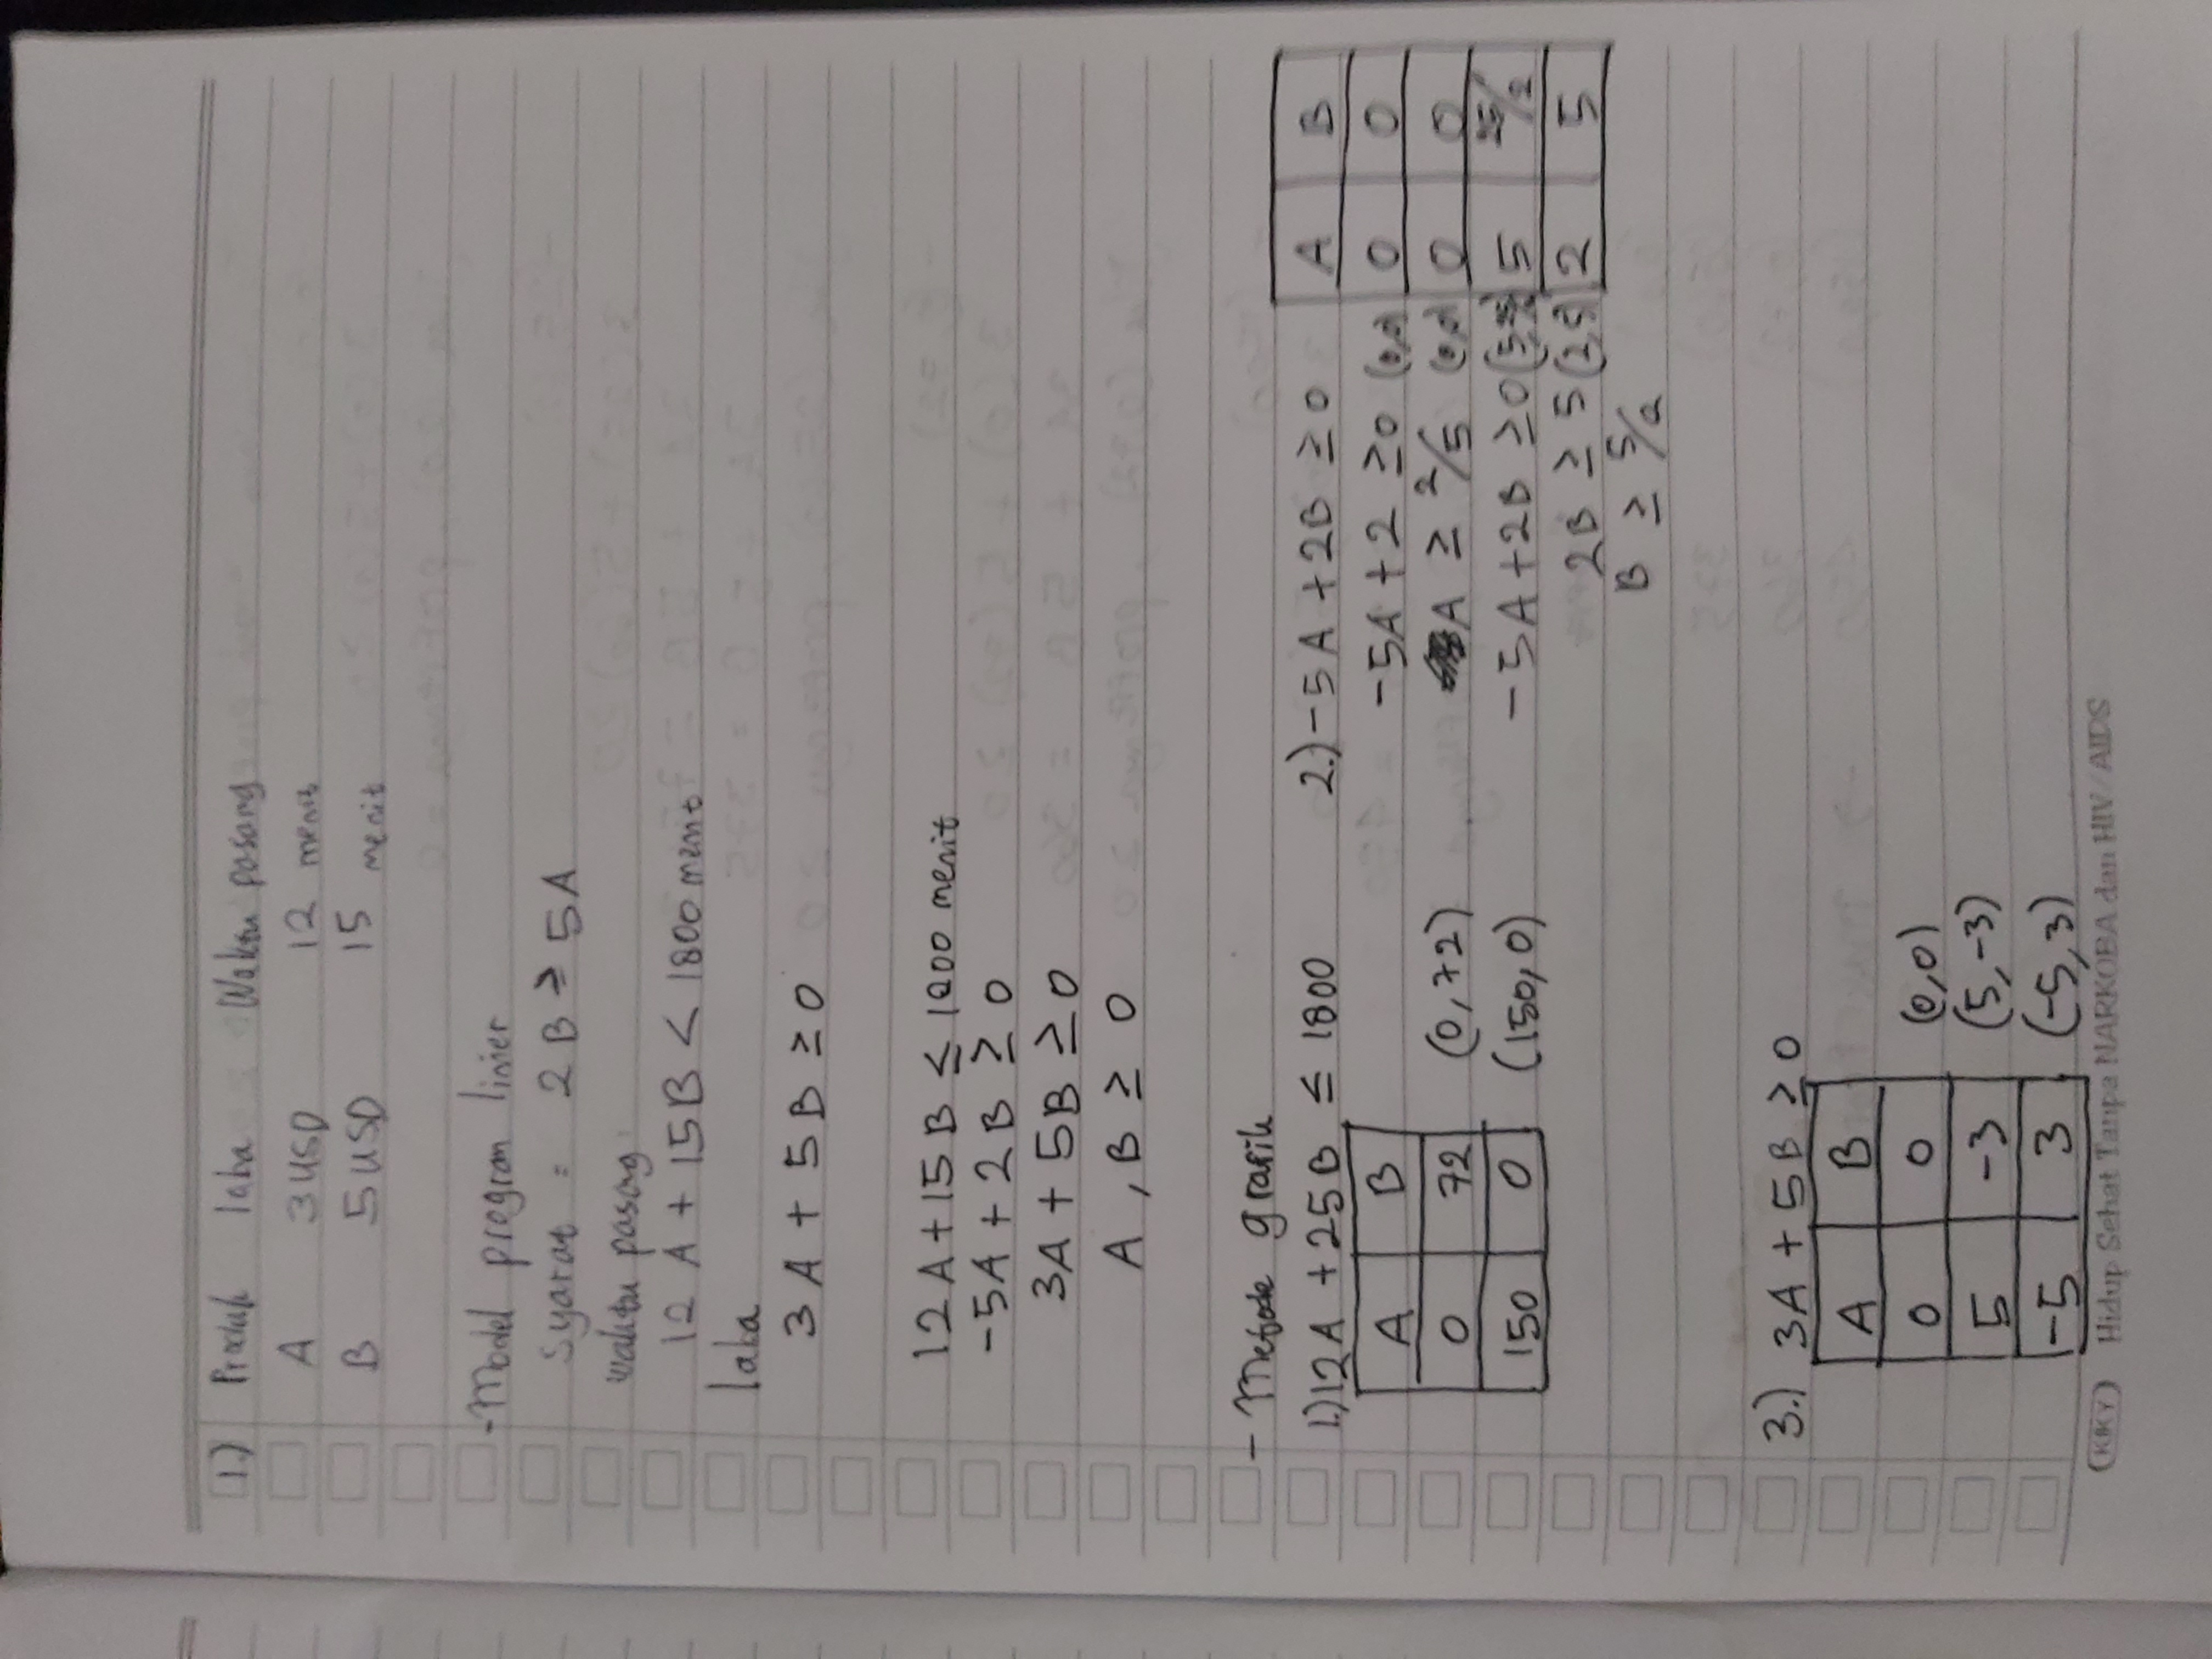 1.) Produk laba Waktu pasang
A 3 USD 12 menit
B 5 USD 15 menit
- Model program linier
Syarat = 2B ≥ 5A
waktu pasang:
12 A + 15 B < 1800 menit
laba
3 A + 5 B ≥ 0
12 A + 15 B ≤ 1800 menit
-5A + 2B ≥ 0
3A + 5B ≥ 0
A , B ≥ 0
- Metode grafik
1.) 12 A + 25 B ≤ 1800
A B
0 72 (0,72)
150 0 (150,0)
2.) -5A + 2B ≥ 0 A B
-5A + 2 ≥ 0 (0,0) 0 0
A ≥ 2/5 (0,0) 0 0
-5A + 2B ≥ 0 5 25/2
2B ≥ 5 (2,5) 2 5
B ≥ 5/2
3.) 3A + 5B ≥ 0
A B
0 0 (0,0)
5 -3 (5,-3)
-5 3 (-5,3)
KIKY Hidup Sehat Tanpa NARKOBA dan HIV/AIDS